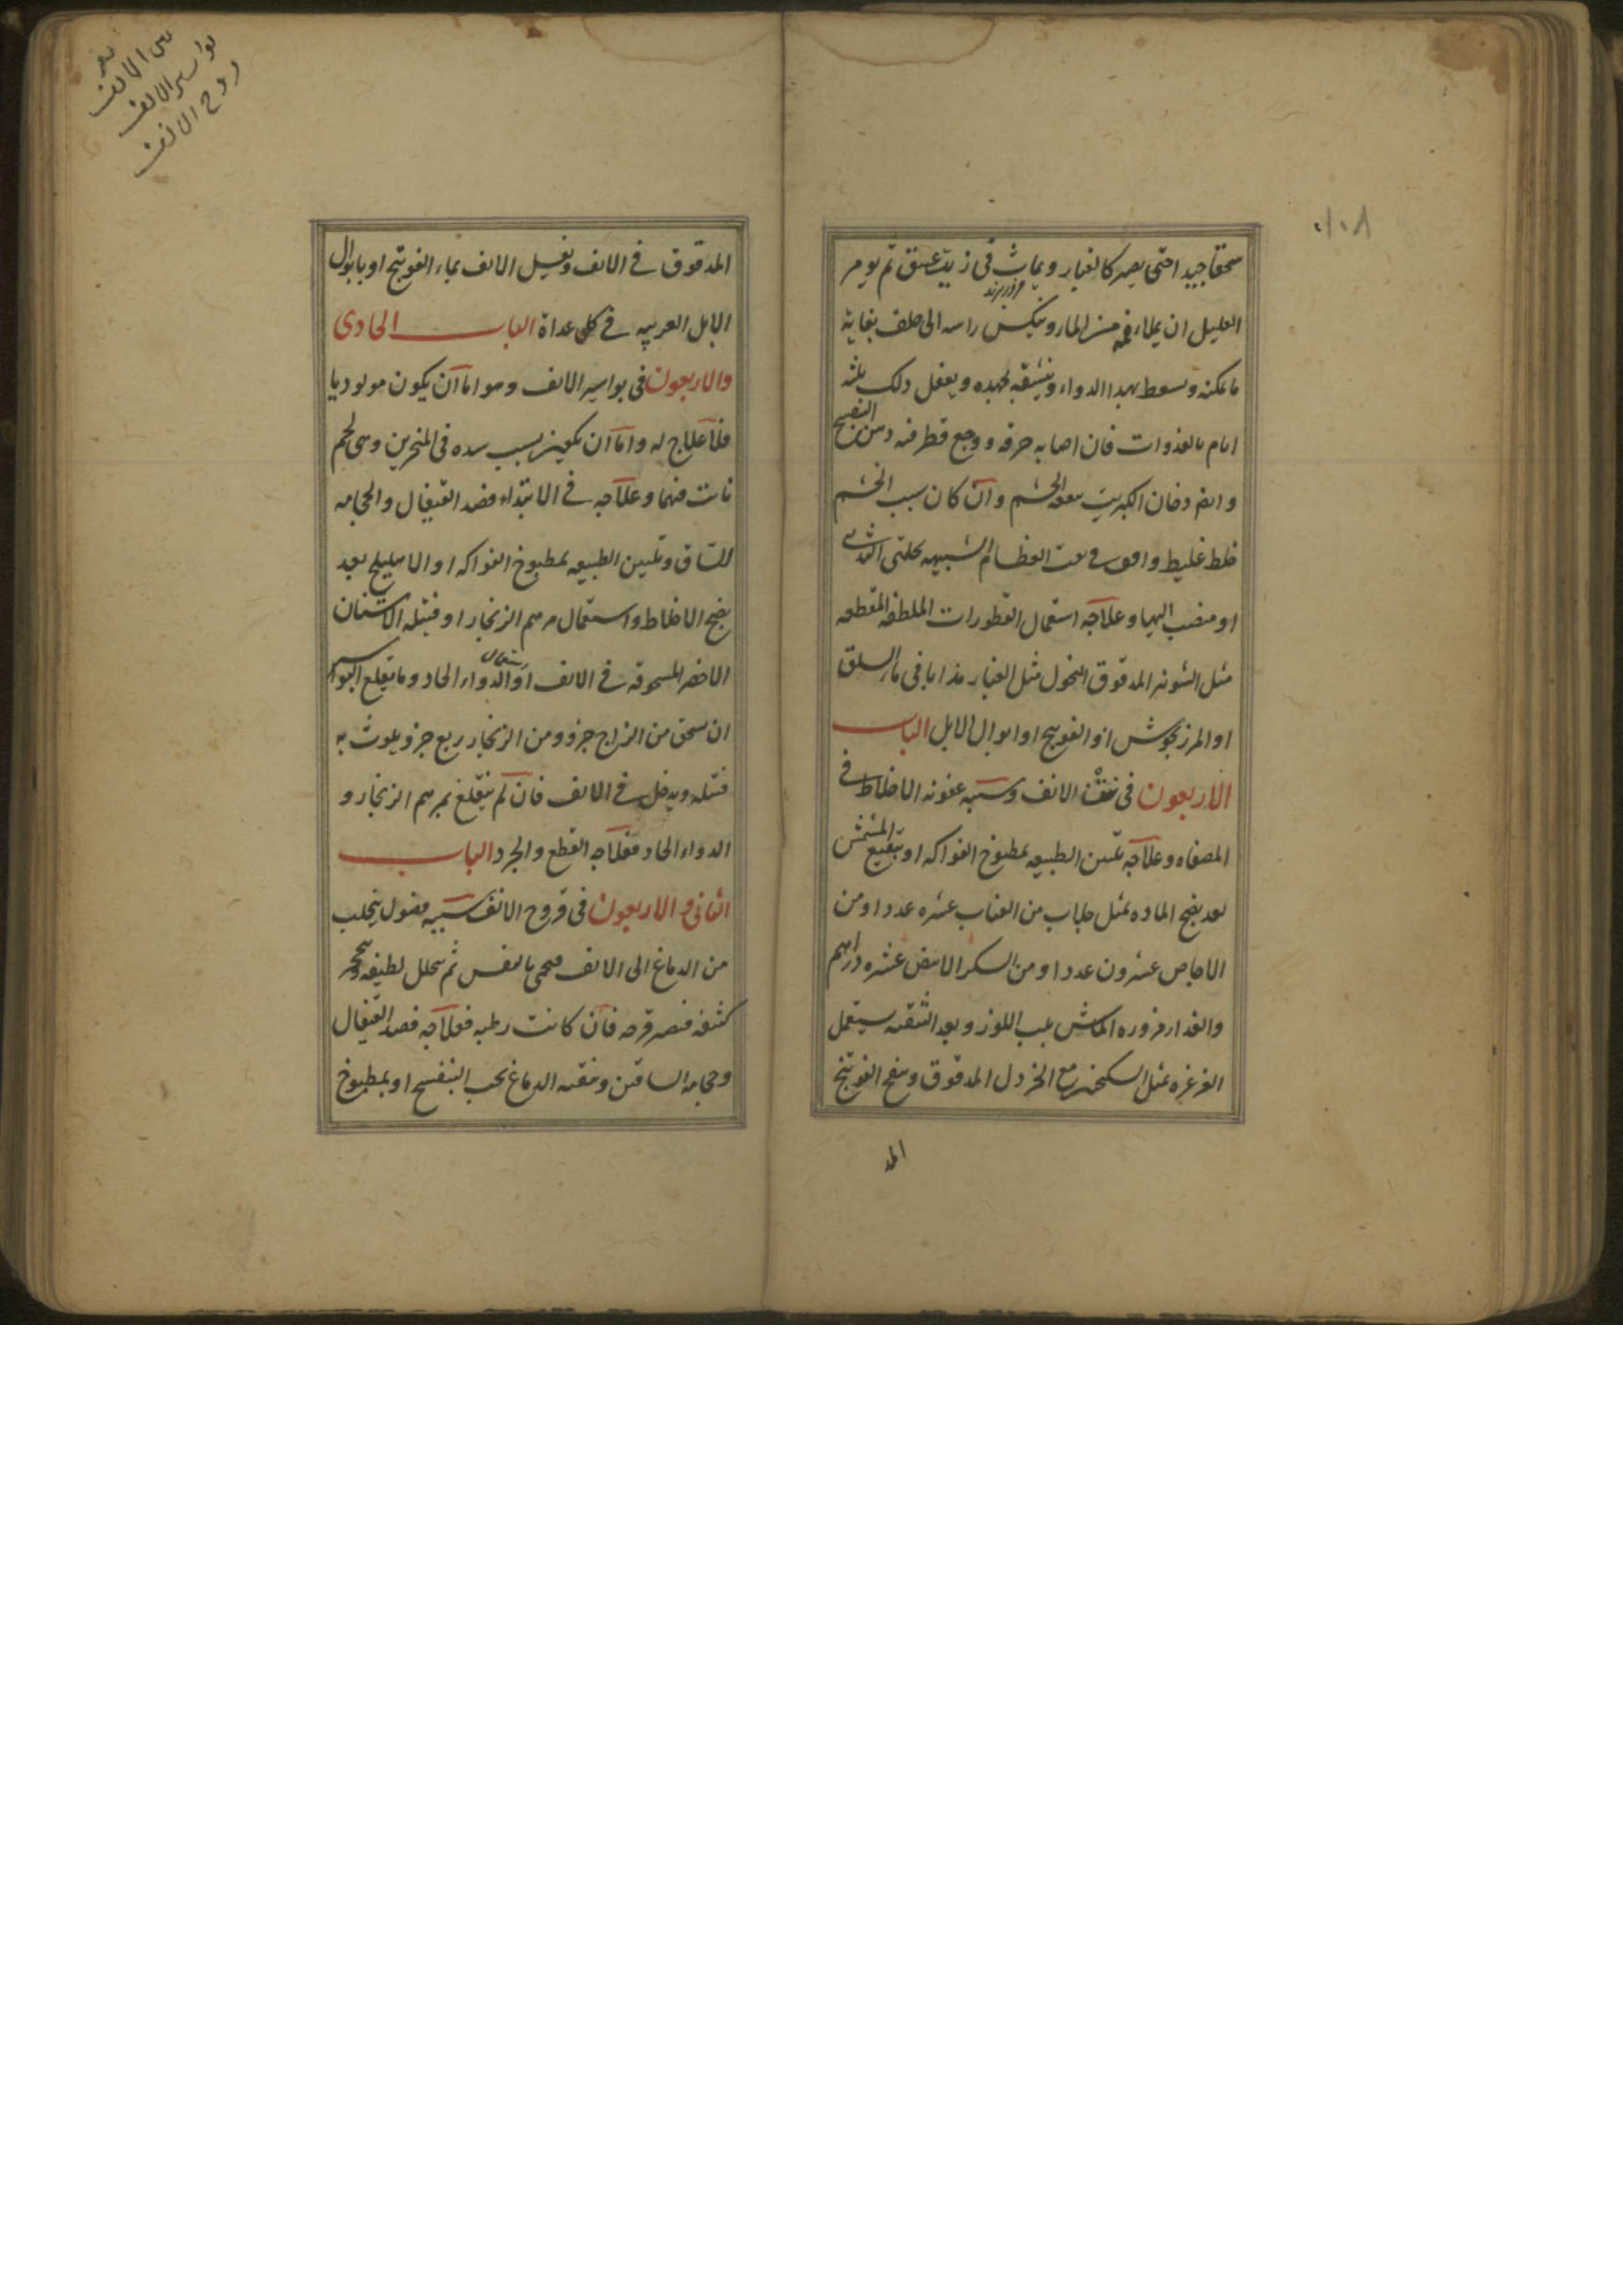 ١٠٨
سحقا جيدا حتى يصير كالغبار ويماث فى زيت عتيق ثم يومر
العليل ان يملاء فمه من الماء وينكس راسه الى خلف بغاية
ما يمكنه ويسعط بهذا الدواء وينشقه بجهده ويفعل ذلك ثلثة
ايام بالغدوات فان اصابه حرقه ووجع قطر فيه دهن البنفسج
وايضا دخان الكبريت الخشم وان كان سبب الخشم
خلط غليظ واقف فى ثقب العظام الشبيهه بحلمتى الثدى
او منصب اليها وعلاجه استعمال القطورات الملطفه المقطعه
مثل الشونيز المدقوق المنخول مثل الغبار مذابا فى ماء السلق
او المرزنجوش او الفوتنج او ابوال الابل الباب
الاربعون فى نتن الانف وسببه عفونه الاخلاط فى
المصفاه وعلاجه تليين الطبيعه بمطبوخ الفواكه او بنقيع المشمش
بعد نضج الماده بمثل جلاب من العناب عشره عددا ومن
الاجاص عشرون عددا ومن السكر الابيض عشره دراهم
والغذاء مزوره الماش بلب اللوز وبعد التنقيه يستعمل
الغرغره بمثل السكنجبين مع الخردل المدقوق وينفخ الفوتنج
المد
نتن الانف
بواسير الانف
قروح الانف
المدقوق فى الانف ويغسل الانف بماء الفوتنج او بابوال
الابل العربيه فى كل غداة الباب الحادى
والاربعون فى بواسير الانف وهو اما ان يكون مولوديا
فلا علاج له واما ان يكون بسبب سده فى المنخرين وهى لحم
نابت فيهما وعلاجه فى الابتداء فصد القيفال والحجامه
للساق وتليين الطبيعه بمطبوخ الفواكه او الاهليلج بعد
نضج الاخلاط واستعمال مرهم الزنجار او فتيله الاشنان
الاخضر المسحوقه فى الانف او استعمال الدواء الحاد وما يقلع البواسير
ان يسحق من الزاج جزو ومن الزنجار ربع جزو يلوث به
فتيله ويدخل فى الانف فان لم ينقلع بمرهم الزنجار و
الدواء الحاد فعلاجه القطع والجرد الباب
الثانى والاربعون فى قروح الانف سببه فضول يتحلب
من الدماغ الى الانف فيحمى بالنفس ثم يتحلل لطيفه
كثيفه فيصير قرحه فان كانت رطبه فعلاجه فصد القيفال
وحجامه الساقين وتنقيه الدماغ بحب البنفسج او بمطبوخ